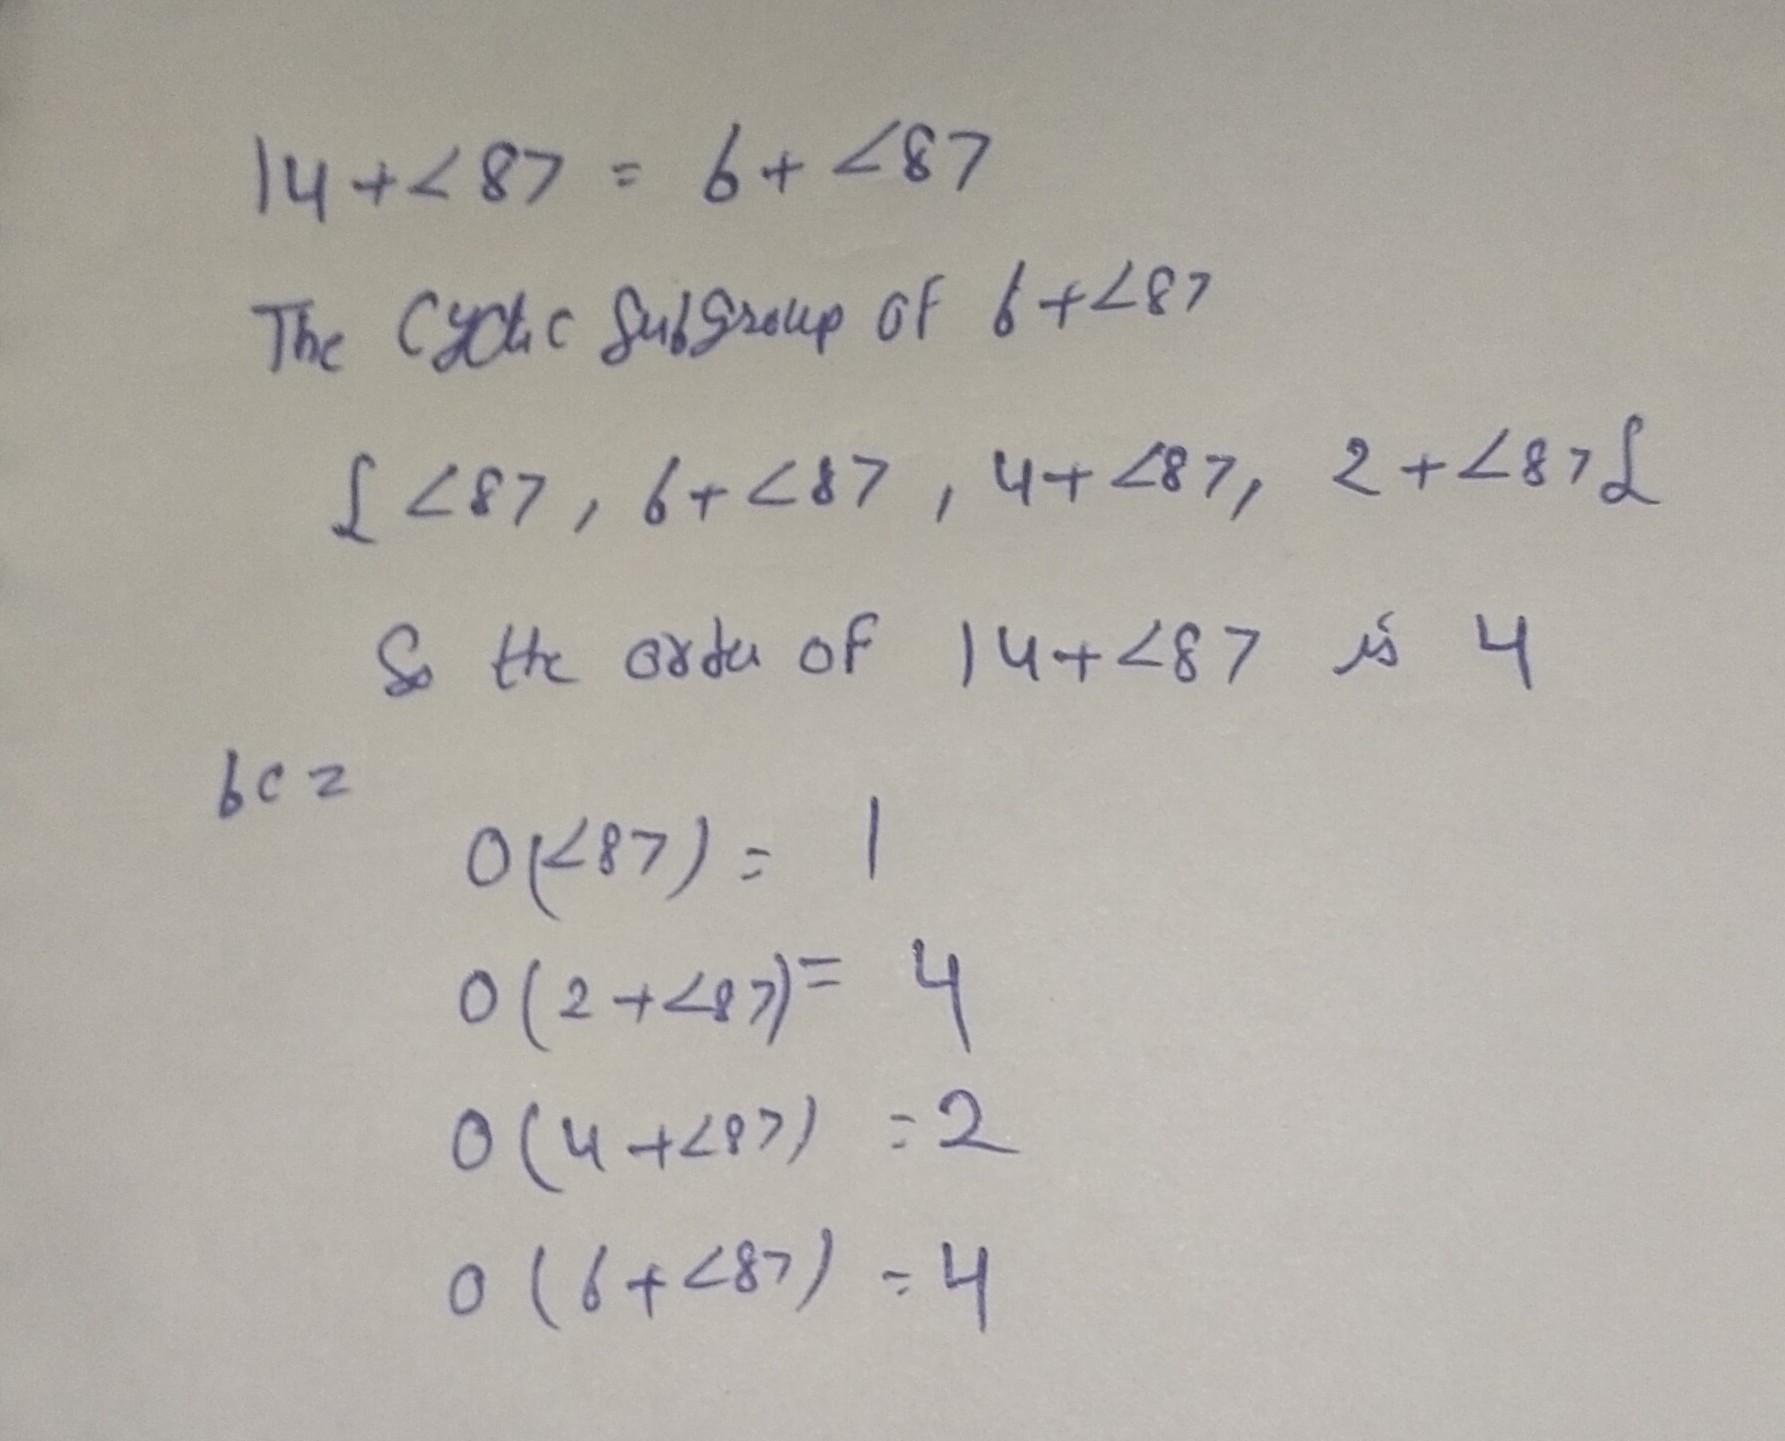 14+<8> = 6+<8>
The Cyclic Subgroup of 6+<8>
{<8>, 6+<8>, 4+<8>, 2+<8>}
So the order of 14+<8> is 4
bcz
O(<8>) = 1
O(2+<8>) = 4
O(4+<8>) = 2
O(6+<8>) = 4